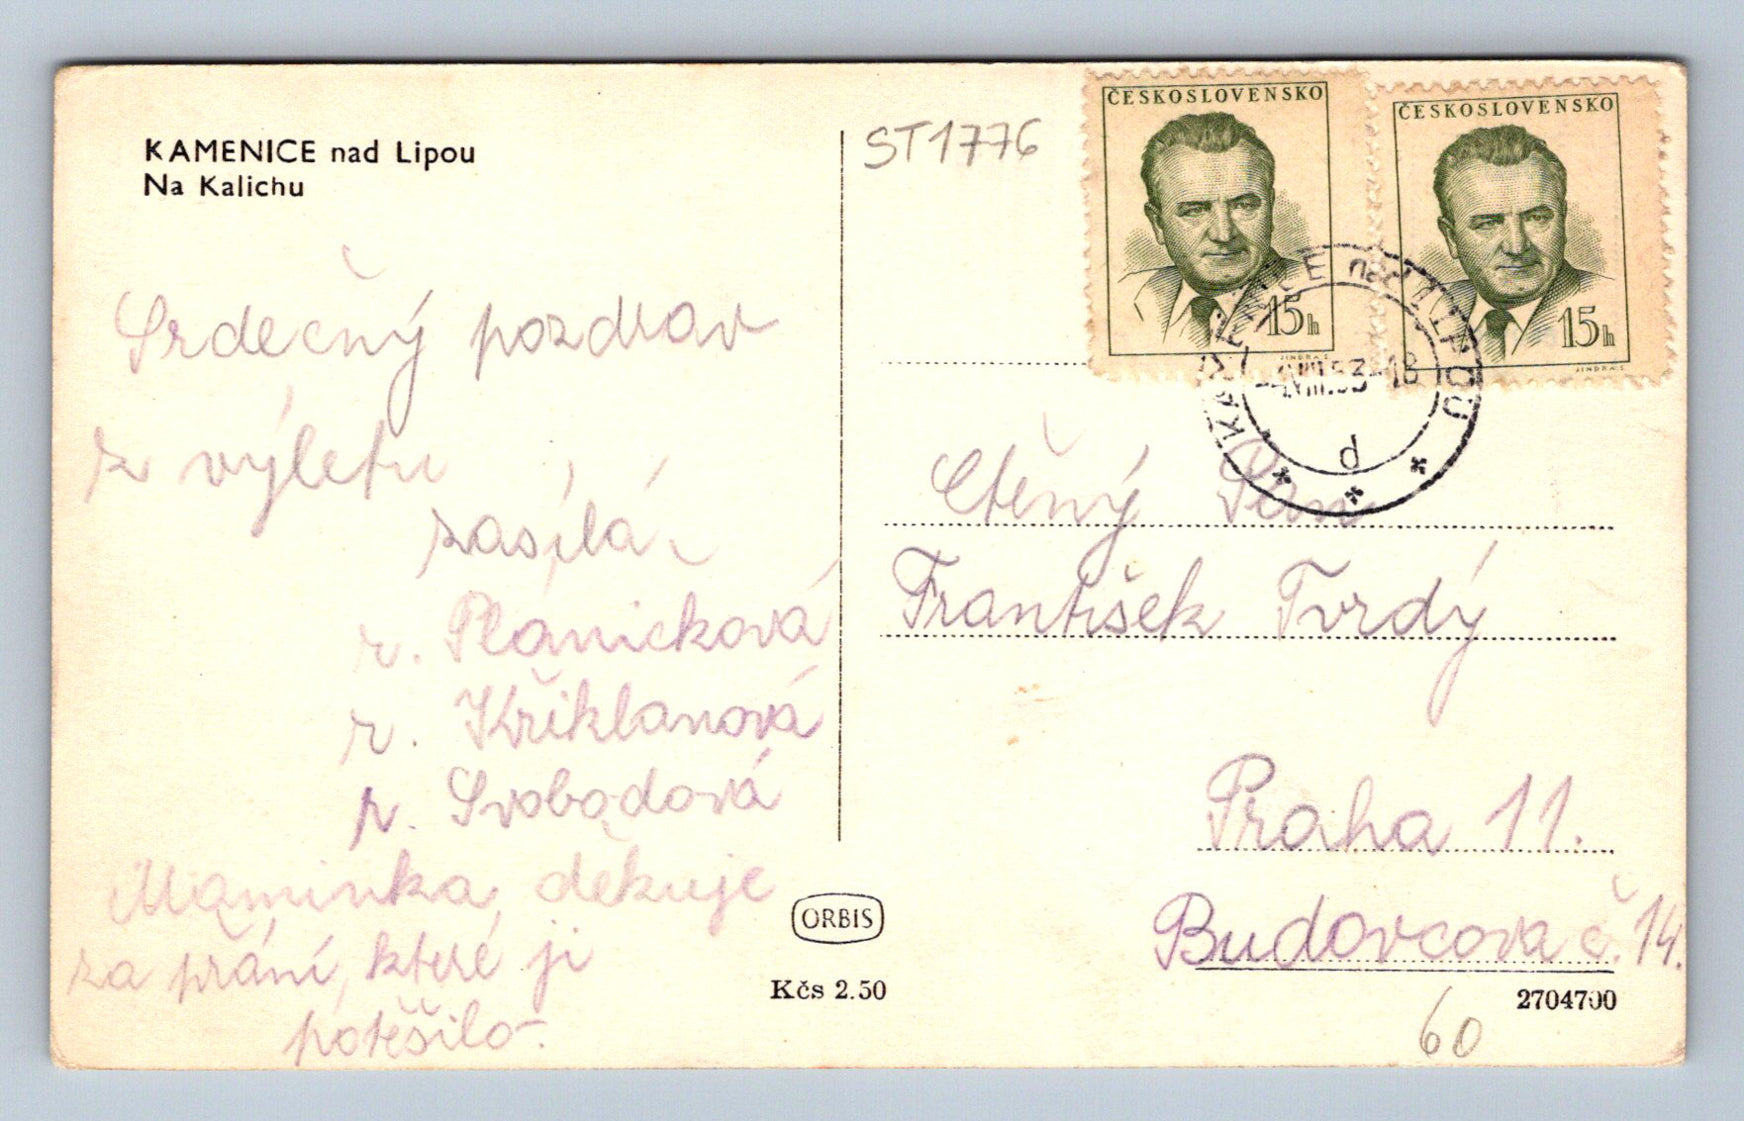 KAMENICE nad Lipou
Na Kalichu
Srdečný pozdrav
z výletu
zasílá
r. Plánicková
r. Křiklanová
r. Svobodová
Maminka děkuje
za přání, které ji
potěšilo.
ORBIS
Kčs 2.50
ST1776
ČESKOSLOVENSKO
15h
JINDRA S.
ČESKOSLOVENSKO
15h
JINDRA S.
KAMENICE nad LIPOU
-4.VIII.53-18
p
Ctěný Pan
František Tvrdý
Praha 11.
Budovcova č. 14.
2704700
60